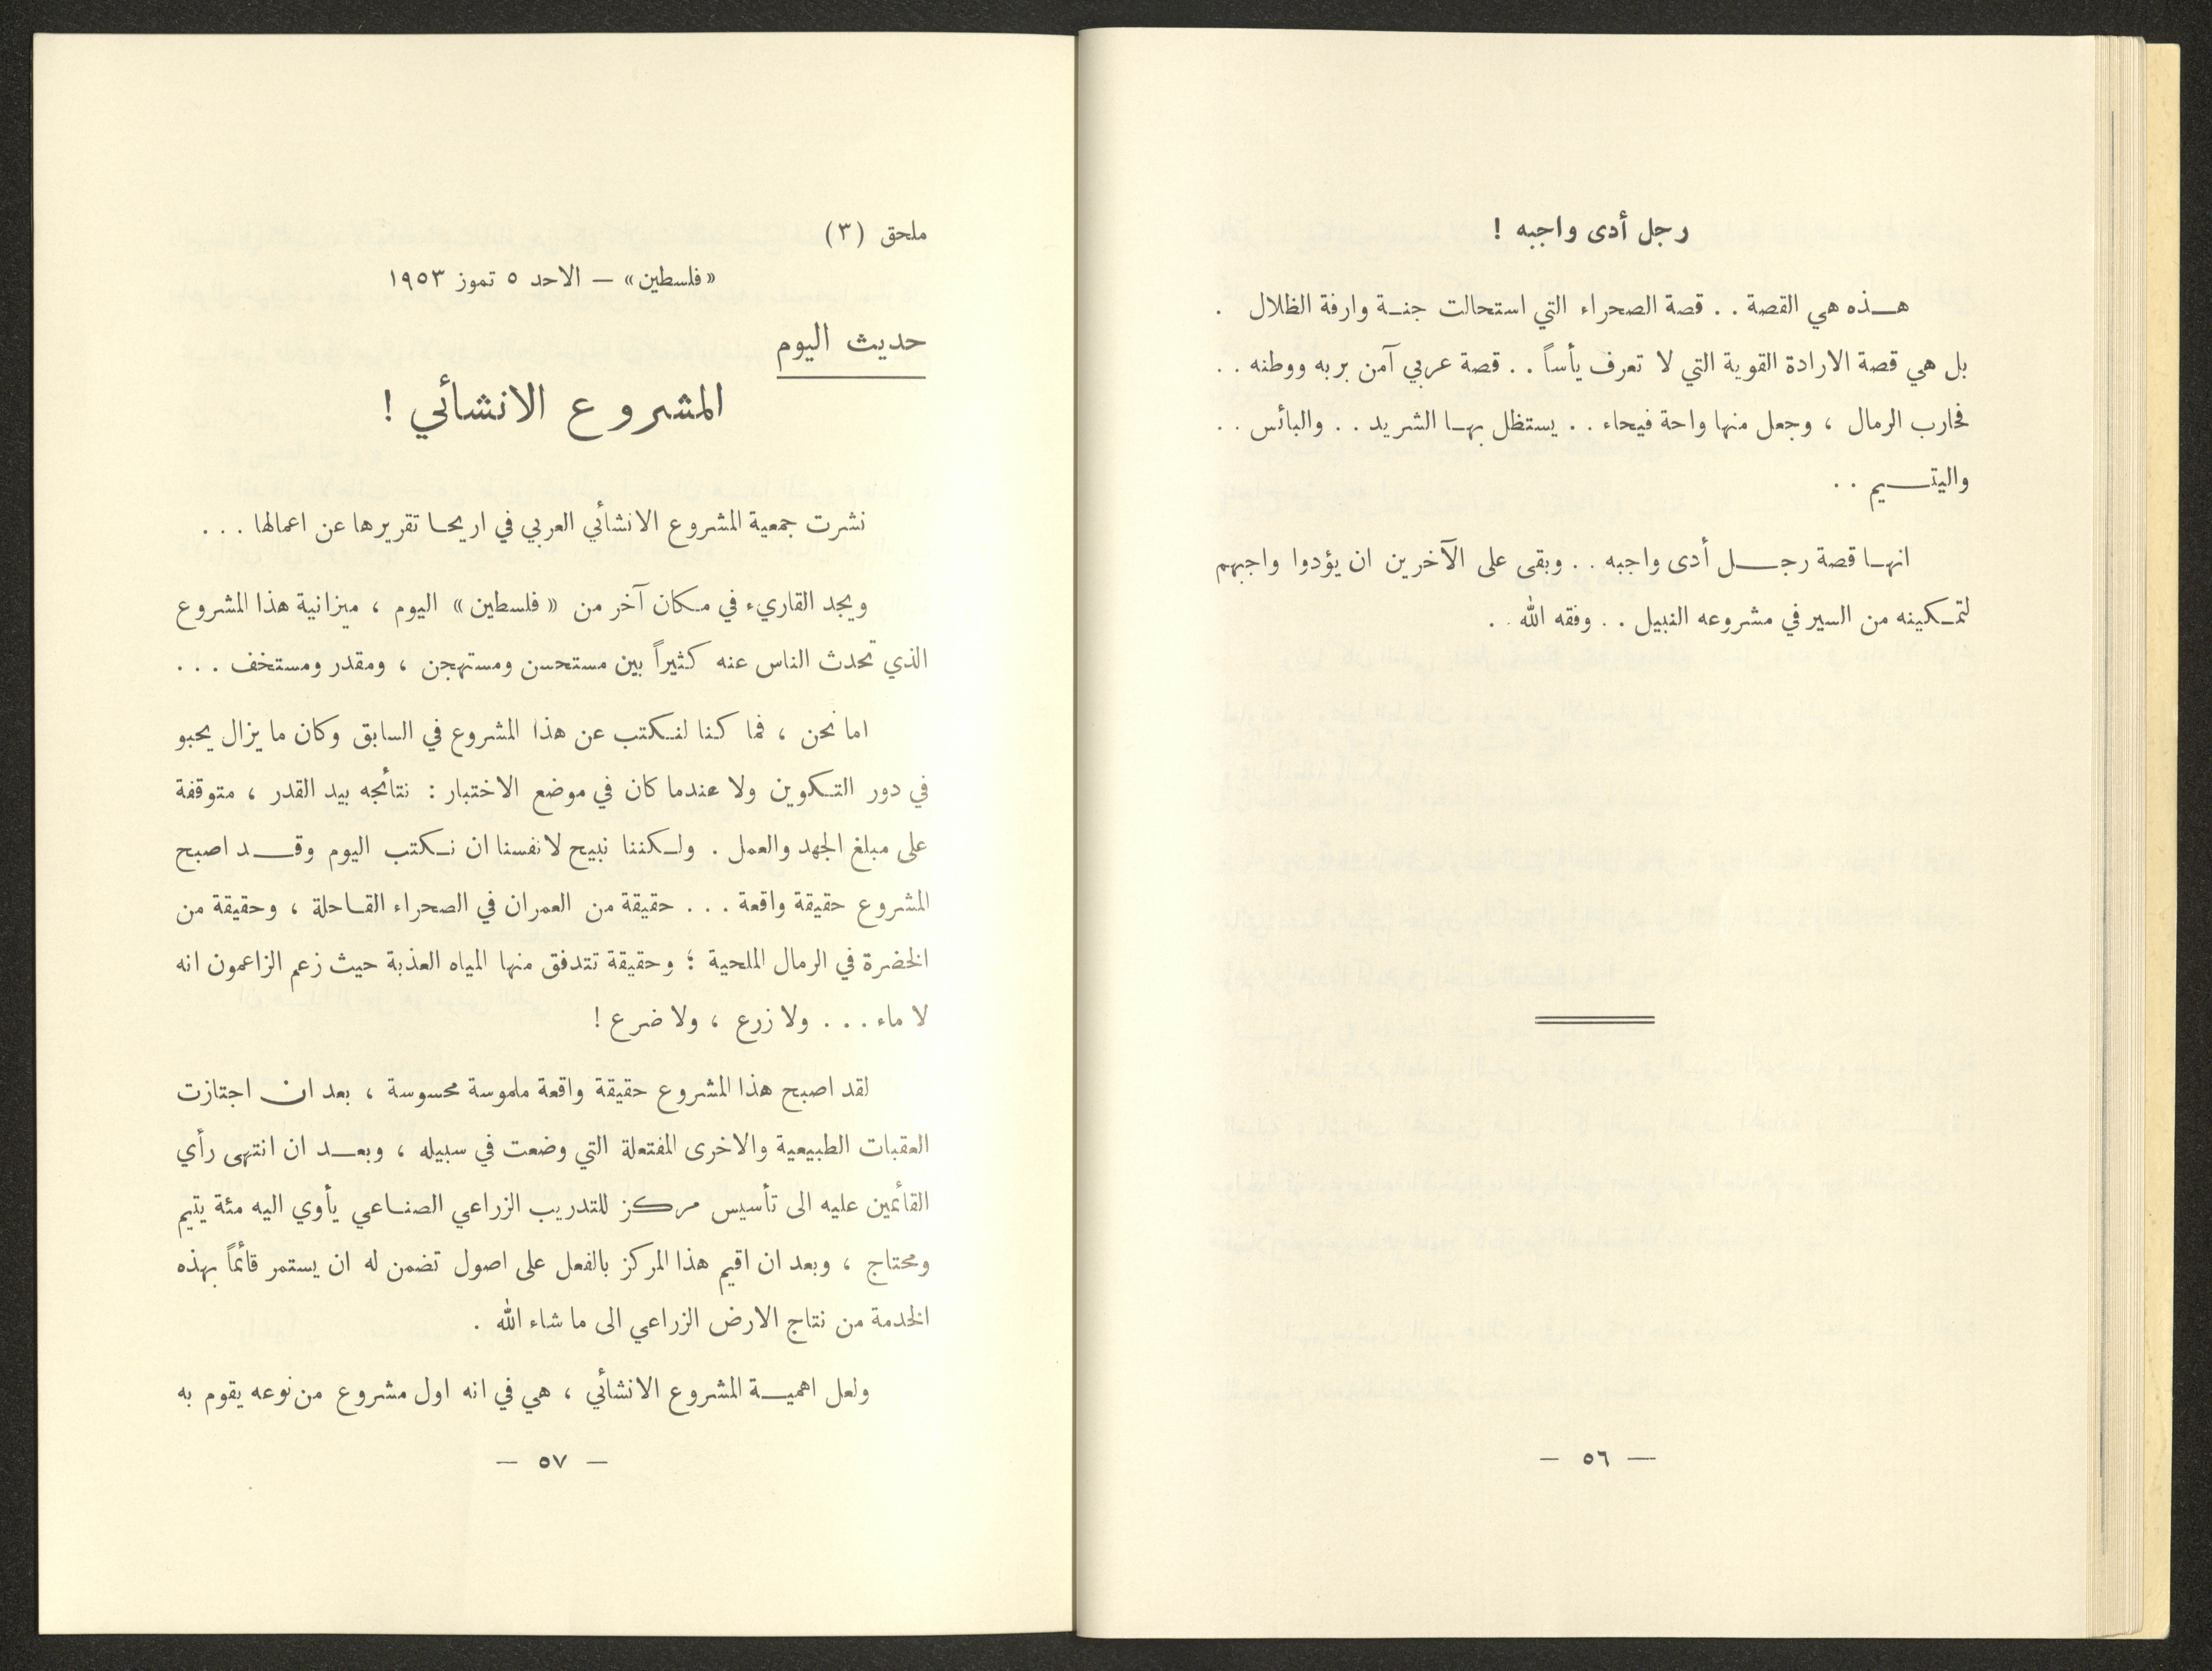 رجل أدى واجبه !
هذه هي القصة . . قصة الصحراء التي استحالت جنة وارفة الظلال .
بل هي قصة الارادة القوية التي لا تعرف يأساً . . قصة عربي آمن بربه ووطنه . .
فحارب الرمال ، وجعل منها واحة فيحاء . . يستظل بها الشريد . . والبائس . .
واليتيم . .
انها قصة رجل أدى واجبه . . وبقى على الآخرين ان يؤدوا واجبهم
لتمكينه من السير في مشروعه النبيل . . وفقه الله . .
— ٥٦ —
ملحق (٣)
«فلسطين» — الاحد ٥ تموز ١٩٥٣
حديث اليوم
المشروع الانشائي !
نشرت جمعية المشروع الانشائي العربي في اريحا تقريرها عن اعمالها . . .
ويجد القاريء في مكان آخر من «فلسطين» اليوم ، ميزانية هذا المشروع
الذي تحدث الناس عنه كثيراً بين مستحسن ومستهجن ، ومقدر ومستخف . . .
اما نحن ، فما كنا لنكتب عن هذا المشروع في السابق وكان ما يزال يحبو
في دور التكوين ولا عندما كان في موضع الاختبار : نتائجه بيد القدر ، متوقفة
على مبلغ الجهد والعمل . ولكننا نبيح لانفسنا ان نكتب اليوم وقد اصبح
المشروع حقيقة واقعة . . . حقيقة من العمران في الصحراء القاحلة ، وحقيقة من
الخضرة في الرمال الملحية ؛ وحقيقة تتدفق منها المياه العذبة حيث زعم الزاعمون انه
لا ماء . . . ولا زرع ، ولا ضرع !
لقد اصبح هذا المشروع حقيقة واقعة ملموسة محسوسة ، بعد ان اجتازت
العقبات الطبيعية والاخرى المفتعلة التي وضعت في سبيله ، وبعد ان انتهى رأي
القائمين عليه الى تأسيس مركز للتدريب الزراعي الصناعي يأوي اليه مئة يتيم
ومحتاج ، وبعد ان اقيم هذا المركز بالفعل على اصول تضمن له ان يستمر قائماً بهذه
الخدمة من نتاج الارض الزراعي الى ما شاء الله .
ولعل اهمية المشروع الانشائي ، هي في انه اول مشروع من نوعه يقوم به
— ٥٧ —